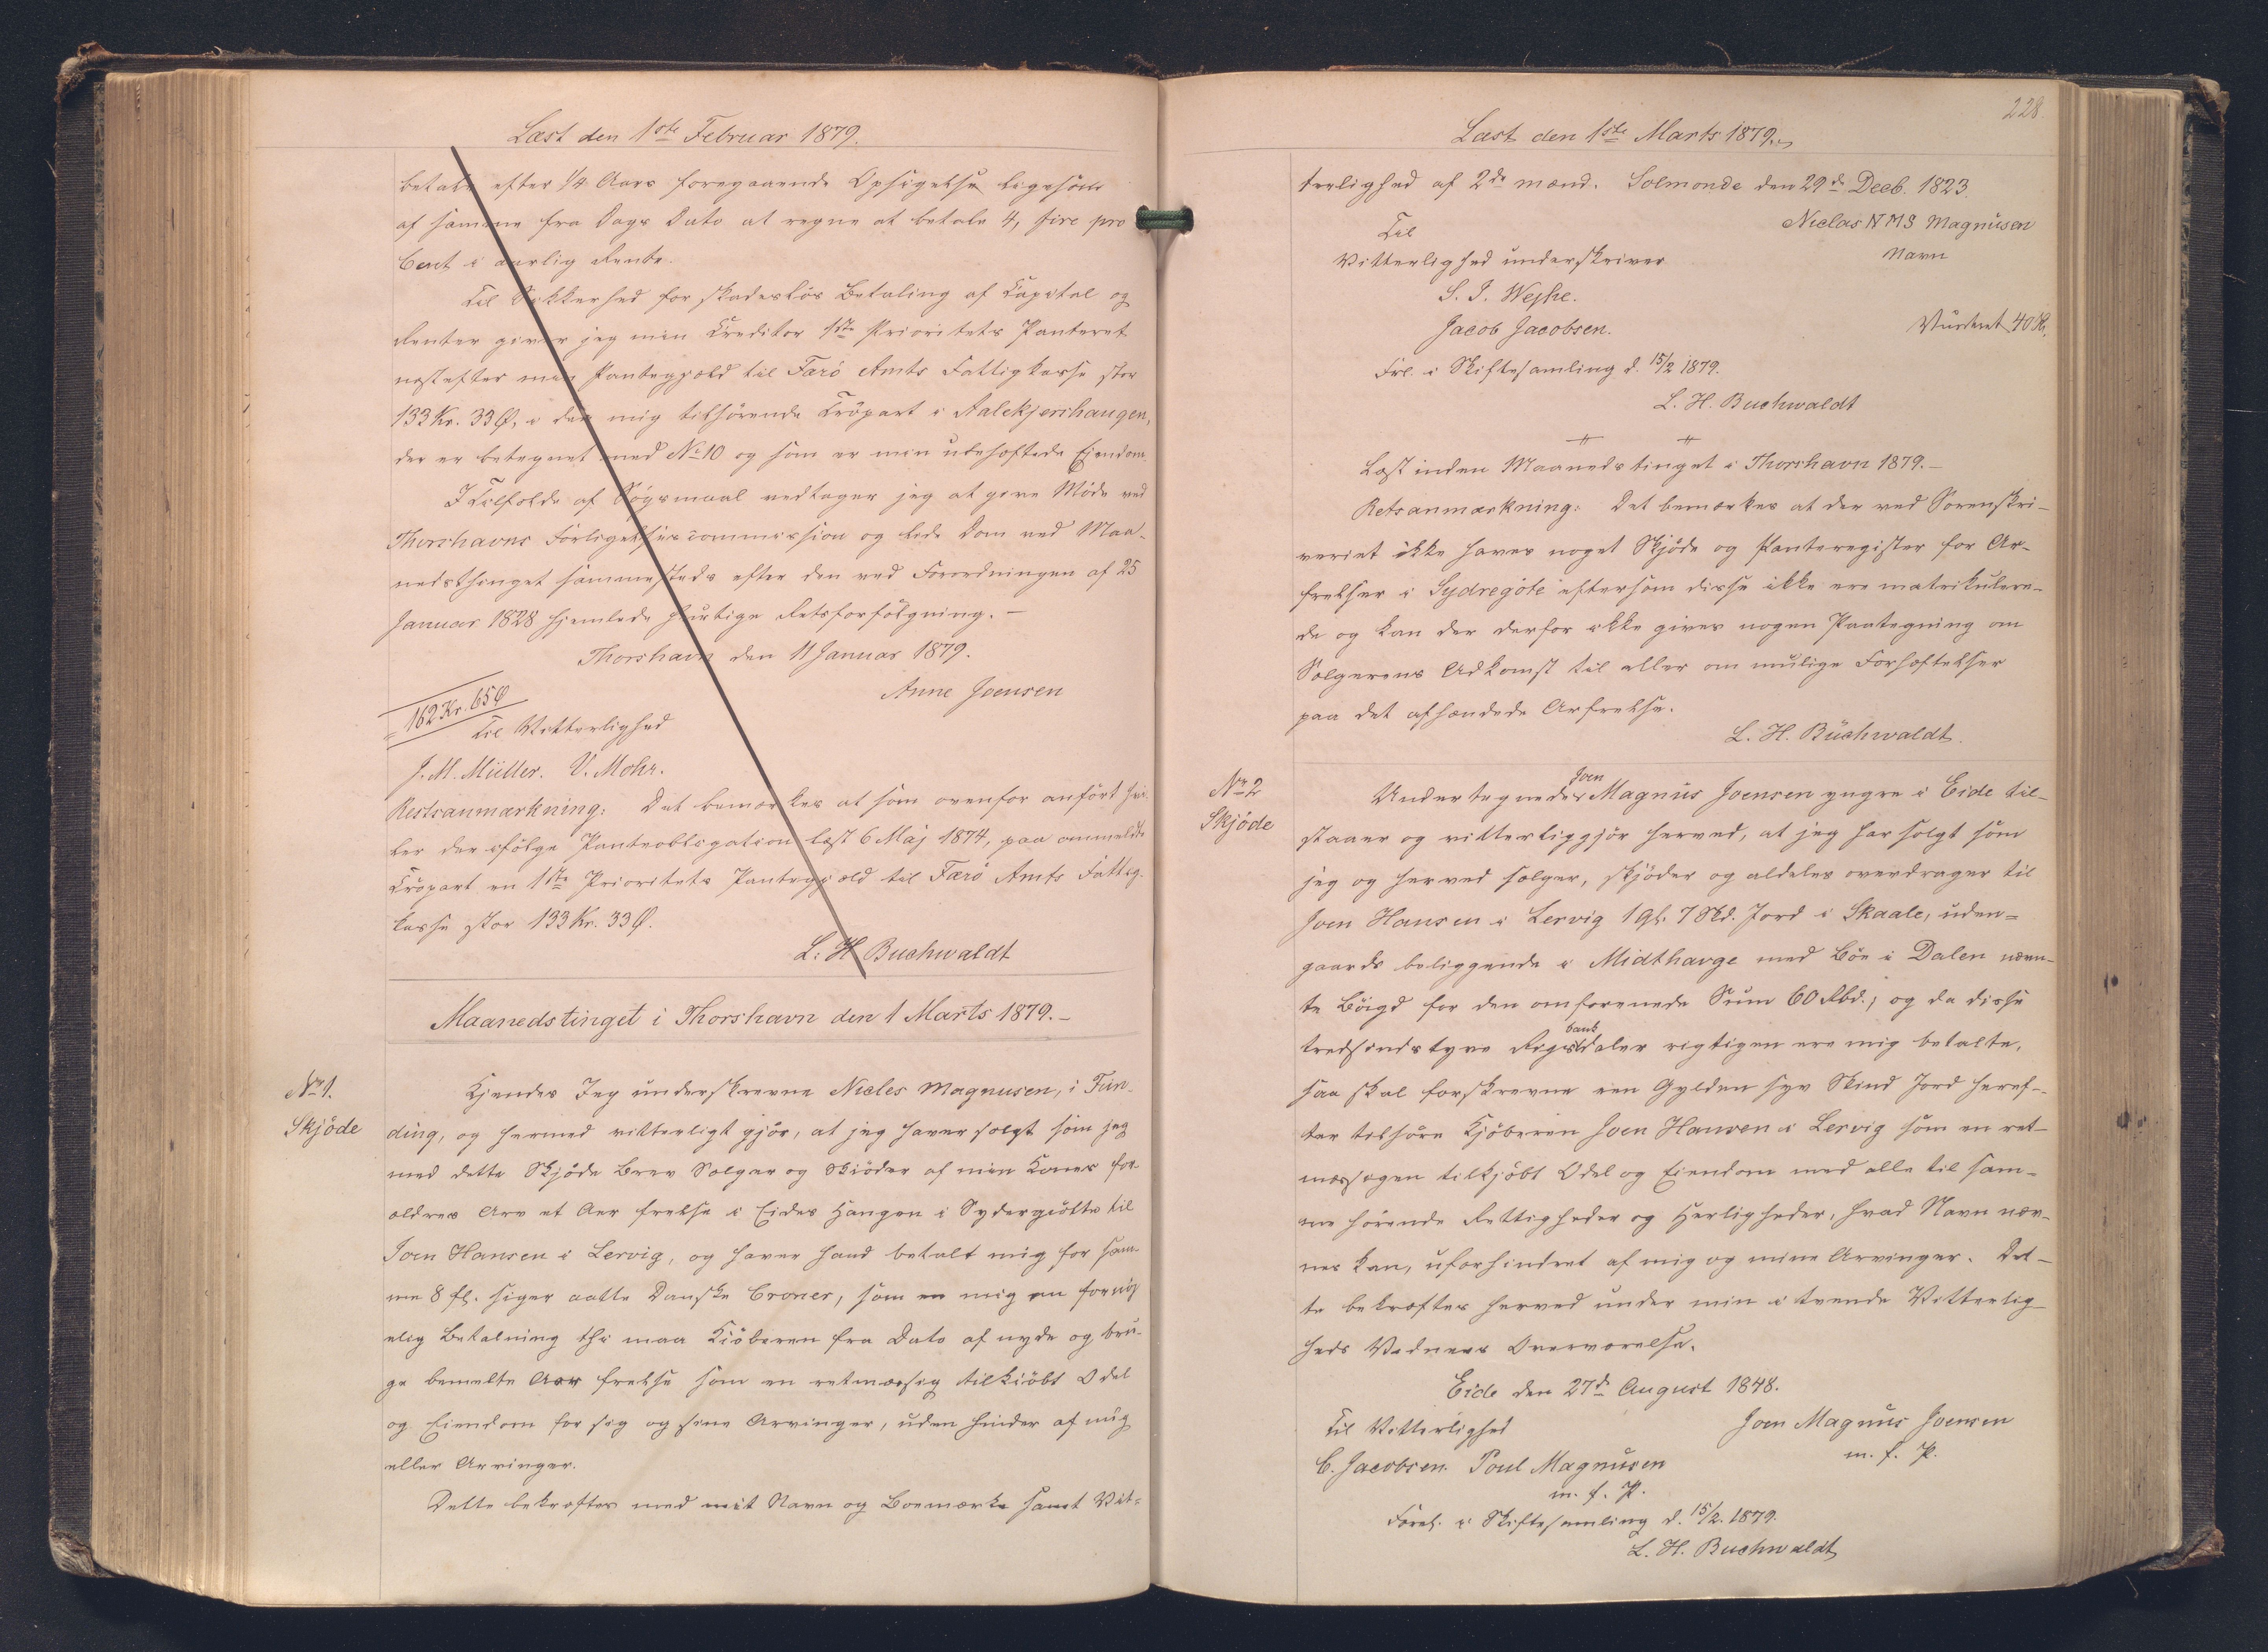 Læst den 1ste Februar 1879.
betale efter 1/4 Aars foregaaende Opsigelse ligesom
af samme fra Dags Dato at regne at betale 4, fire pro
Cent i aarlig Rente.
Til Sikkerhed for skadeslös Betaling af Capital og
Renter giver jeg min Creditor 1ste Prioritets Panteret
næstefter min Pantegjæld til Færö Amts Fattigkasse stor
133 Kr. 33 Ø, i den mig tilhörende Tröpart i Aalekjershaugen,
der er betegnet med No 10 og som er min ubehæftede Eiendom.
I Tilfælde af Sögsmaal vedtager jeg at give Möde ved
Thorshavns Forligelsescommission og lide Dom ved Maa-
nedsthinget sammesteds efter den ved Forordningen af 25
Januar 1828 hjemlede hurtige Retsforfölgning. —
Thorshavn den 11 Januar 1879.
Anne Joensen
162 Kr. 65 Ø
Til Vitterlighed
J. M. Müller. V. Mohr.
Restsanmærkning: Det bemærkes at som ovenfor anfört hvi-
ler der ifölge Panteobligation læst 6 Maj 1874, paa ommeldte
Tröpart en 1ste Prioritets Pantegjæld til Færö Amts Fattig-
kasse stor 133 Kr. 33 Ø.
L. H Buchwaldt
Maanedstinget i Thorshavn den 1 Marts 1879. —
No 1.
Skjöde
Kjendes Jeg underskrevne Nicles Magnusen, i Fun-
ding, og hermed vitterligt gjör, at jeg haver solgt som jeg
med dette Skjöde Brev Sælger og Skiöder af min Kones for-
ældres Arv et Aer frelse i Eides Haugen i Sydergiötte til
Joen Hansen i Lervig, og haver hand betalt mig for sam-
me 8 fl. siger aatte Danske Croner, som er mig en fornöy
elig Betalning thi maa Kiöberen fra Dato af nyde og bru-
ge bemelte Aer frelse som en retmæssig tilkiöbt Odel
og Eiendom for sig og sine Arvinger, uden hinder af mig
eller Arvinger.
Dette bekræftes med mit Navn og Boemærke samt Vit=
228.
Læst den 1ste Marts 1879.
terlighed af 2de mænd. Solmonde den 29de Decb. 1823.
Niclas NMS Magnusen
Navn
Til
Vitterlighed underskriver
S. J. Wejhe.
Jacob Jacobsen.
Vurderet 40 Kr.
Frl. i Skiftesamling d. 15/2 1879.
L. H. Buchwaldt
Læst inden Maanedstinget i Thorshavn 1879. —
Retsanmærkning: Det bemærkes at der ved Sorenskri-
veriet ikke haves noget Skjöde og Panteregister for Ar-
frelser i Sydregöte eftersom disse ikke ere matrikulere-
de og kan der derfor ikke gives nogen Paategning om
Sælgerens Adkomst til eller om mulige Forhæftelser
paa det afhændede Arfrelse.
L. H. Buchwaldt.
No 2
Skjöde
Joen
Undertegnede Magnus Joensen yngre i Eide til-
staaer og vitterliggjör herved, at jeg har solgt som
jeg og herved sælger, skjöder og aldeles overdrager til
Joen Hansen i Lervig 1 Gl. 7 Skd. Jord i Skaale, uden=
gaards beliggende i Midthavge med Böe i Dalen næven-
te Böigd for den omforenede Sum 60 Rbd., og da disse
bank
tredsindstyve Rigsdaler rigtigen ere mig betalte,
saa skal forskrevne een Gylden syv Skind Jord heref-
ter tilhöre Kjöberen Joen Hansen i Lervig som en ret-
mæssigen tilkjöbt Odel og Eiendom med alle til sam-
me hörende Rettigheder og Herligheder, hvad Navn næv-
nes kan, uforhindret af mig og mine Arvinger. Det-
te bekræftes herved under min i tvende Vitterlig-
heds Vidners Overværelse.
Eide den 27de August 1848.
Til Vitterlighed
Joen Magnus Joensen
m. f. P.
C. Jacobsen. Poul Magnusen
m. f. P.
Forel. i Skiftesamling d. 15/2. 1879.
L. H. Buchwaldt